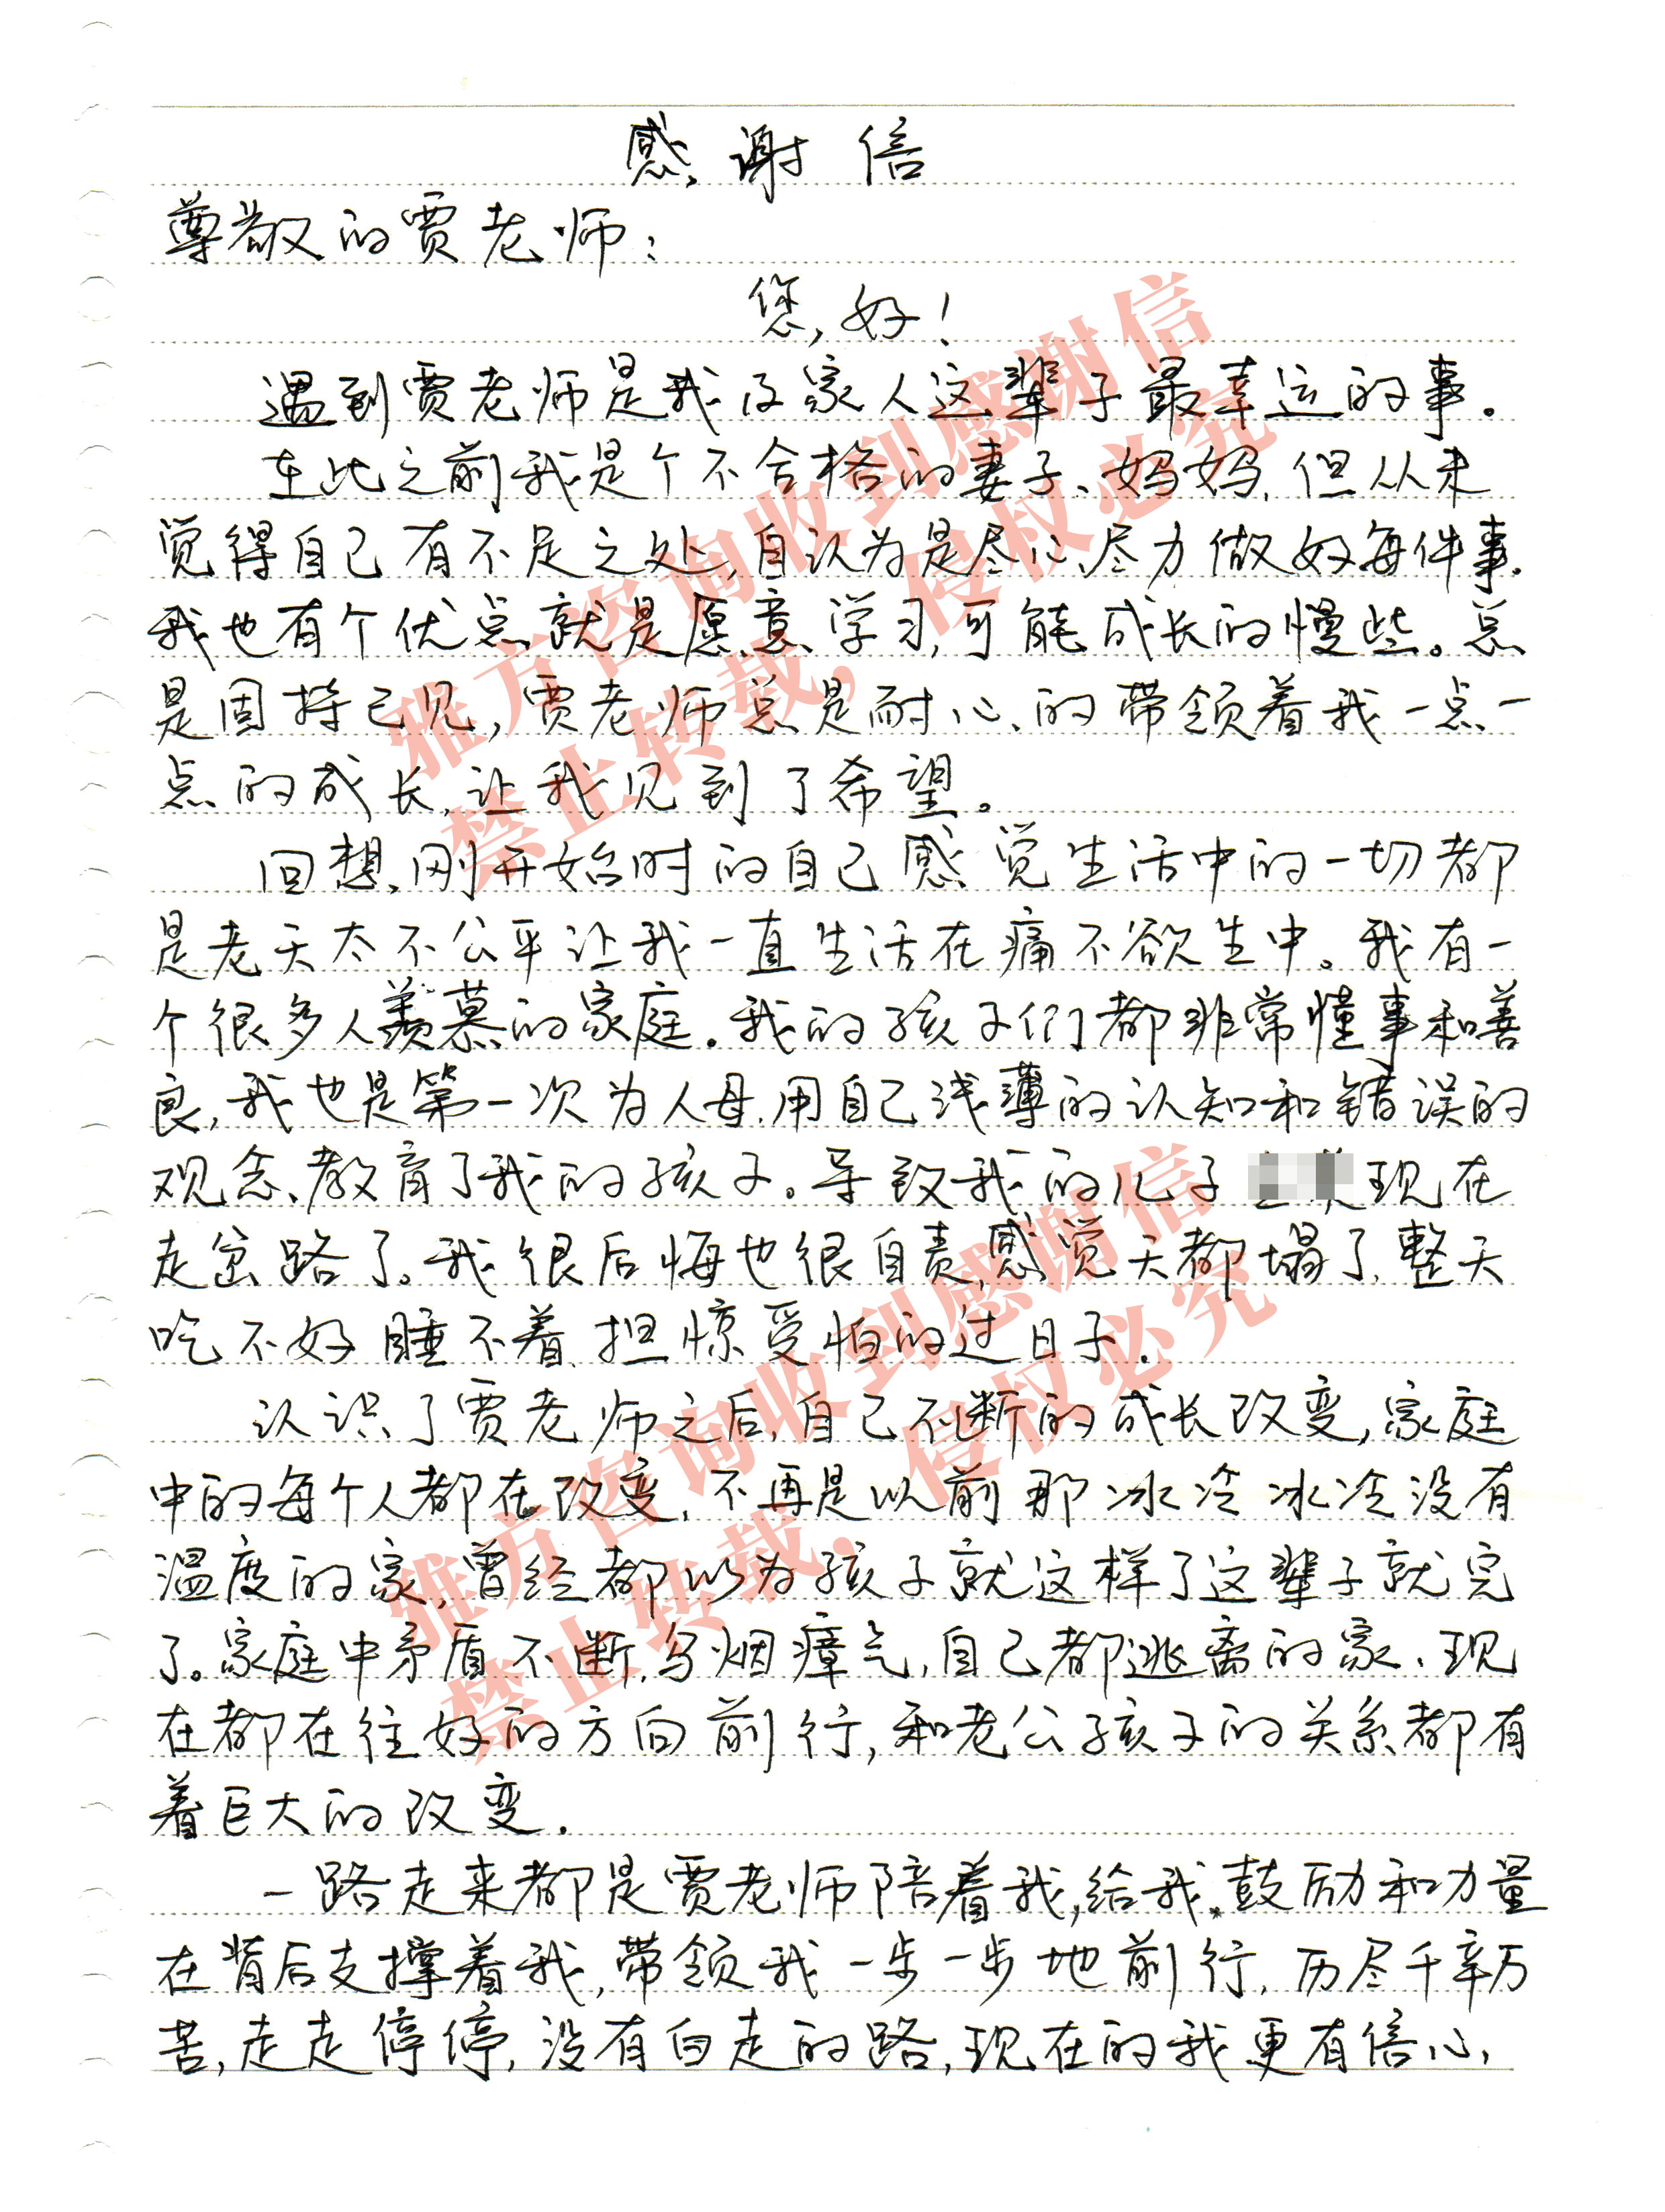 感谢信
尊敬的贾老师：
您好！
遇到贾老师是我及家人这辈子最幸运的事。
在此之前我是个不合格的妻子、妈妈,但从未
觉得自己有不足之处,自认为是尽心尽力做好每件事.
我也有个优点就是愿意学习,可能成长的慢些。总
是固持己见,贾老师总是耐心的带领着我一点一
点的成长,让我见到了希望。
回想刚开始时的自己感觉生活中的一切都
是老天太不公平让我一直生活在痛不欲生中。我有一
个很多人羡慕的家庭.我的孩子们都非常懂事和善
良,我也是第一次为人母.用自己浅薄的认知和错误的
观念教育了我的孩子。导致我的儿子 现在
走岔路了。我很后悔也很自责,感觉天都塌了,整天
吃不好睡不着,担惊受怕的过日子.
认识了贾老师之后,自己不断的成长改变,家庭
中的每个人都在改变,不再是以前那冰冷冰冷没有
温度的家,曾经都以为孩子就这样了这辈子就完
了。家庭中矛盾不断,乌烟瘴气,自己都逃离的家、现
在都在往好的方向前行,和老公孩子的关系都有
着巨大的改变.
一路走来都是贾老师陪着我,给我鼓励和力量
在背后支撑着我,带领我一步一步地前行,历尽千辛万
苦,走走停停,没有白走的路,现在的我更有信心,
雅方咨询收到感谢信
禁止转载，侵权必究
雅方咨询收到感谢信
禁止转载，侵权必究